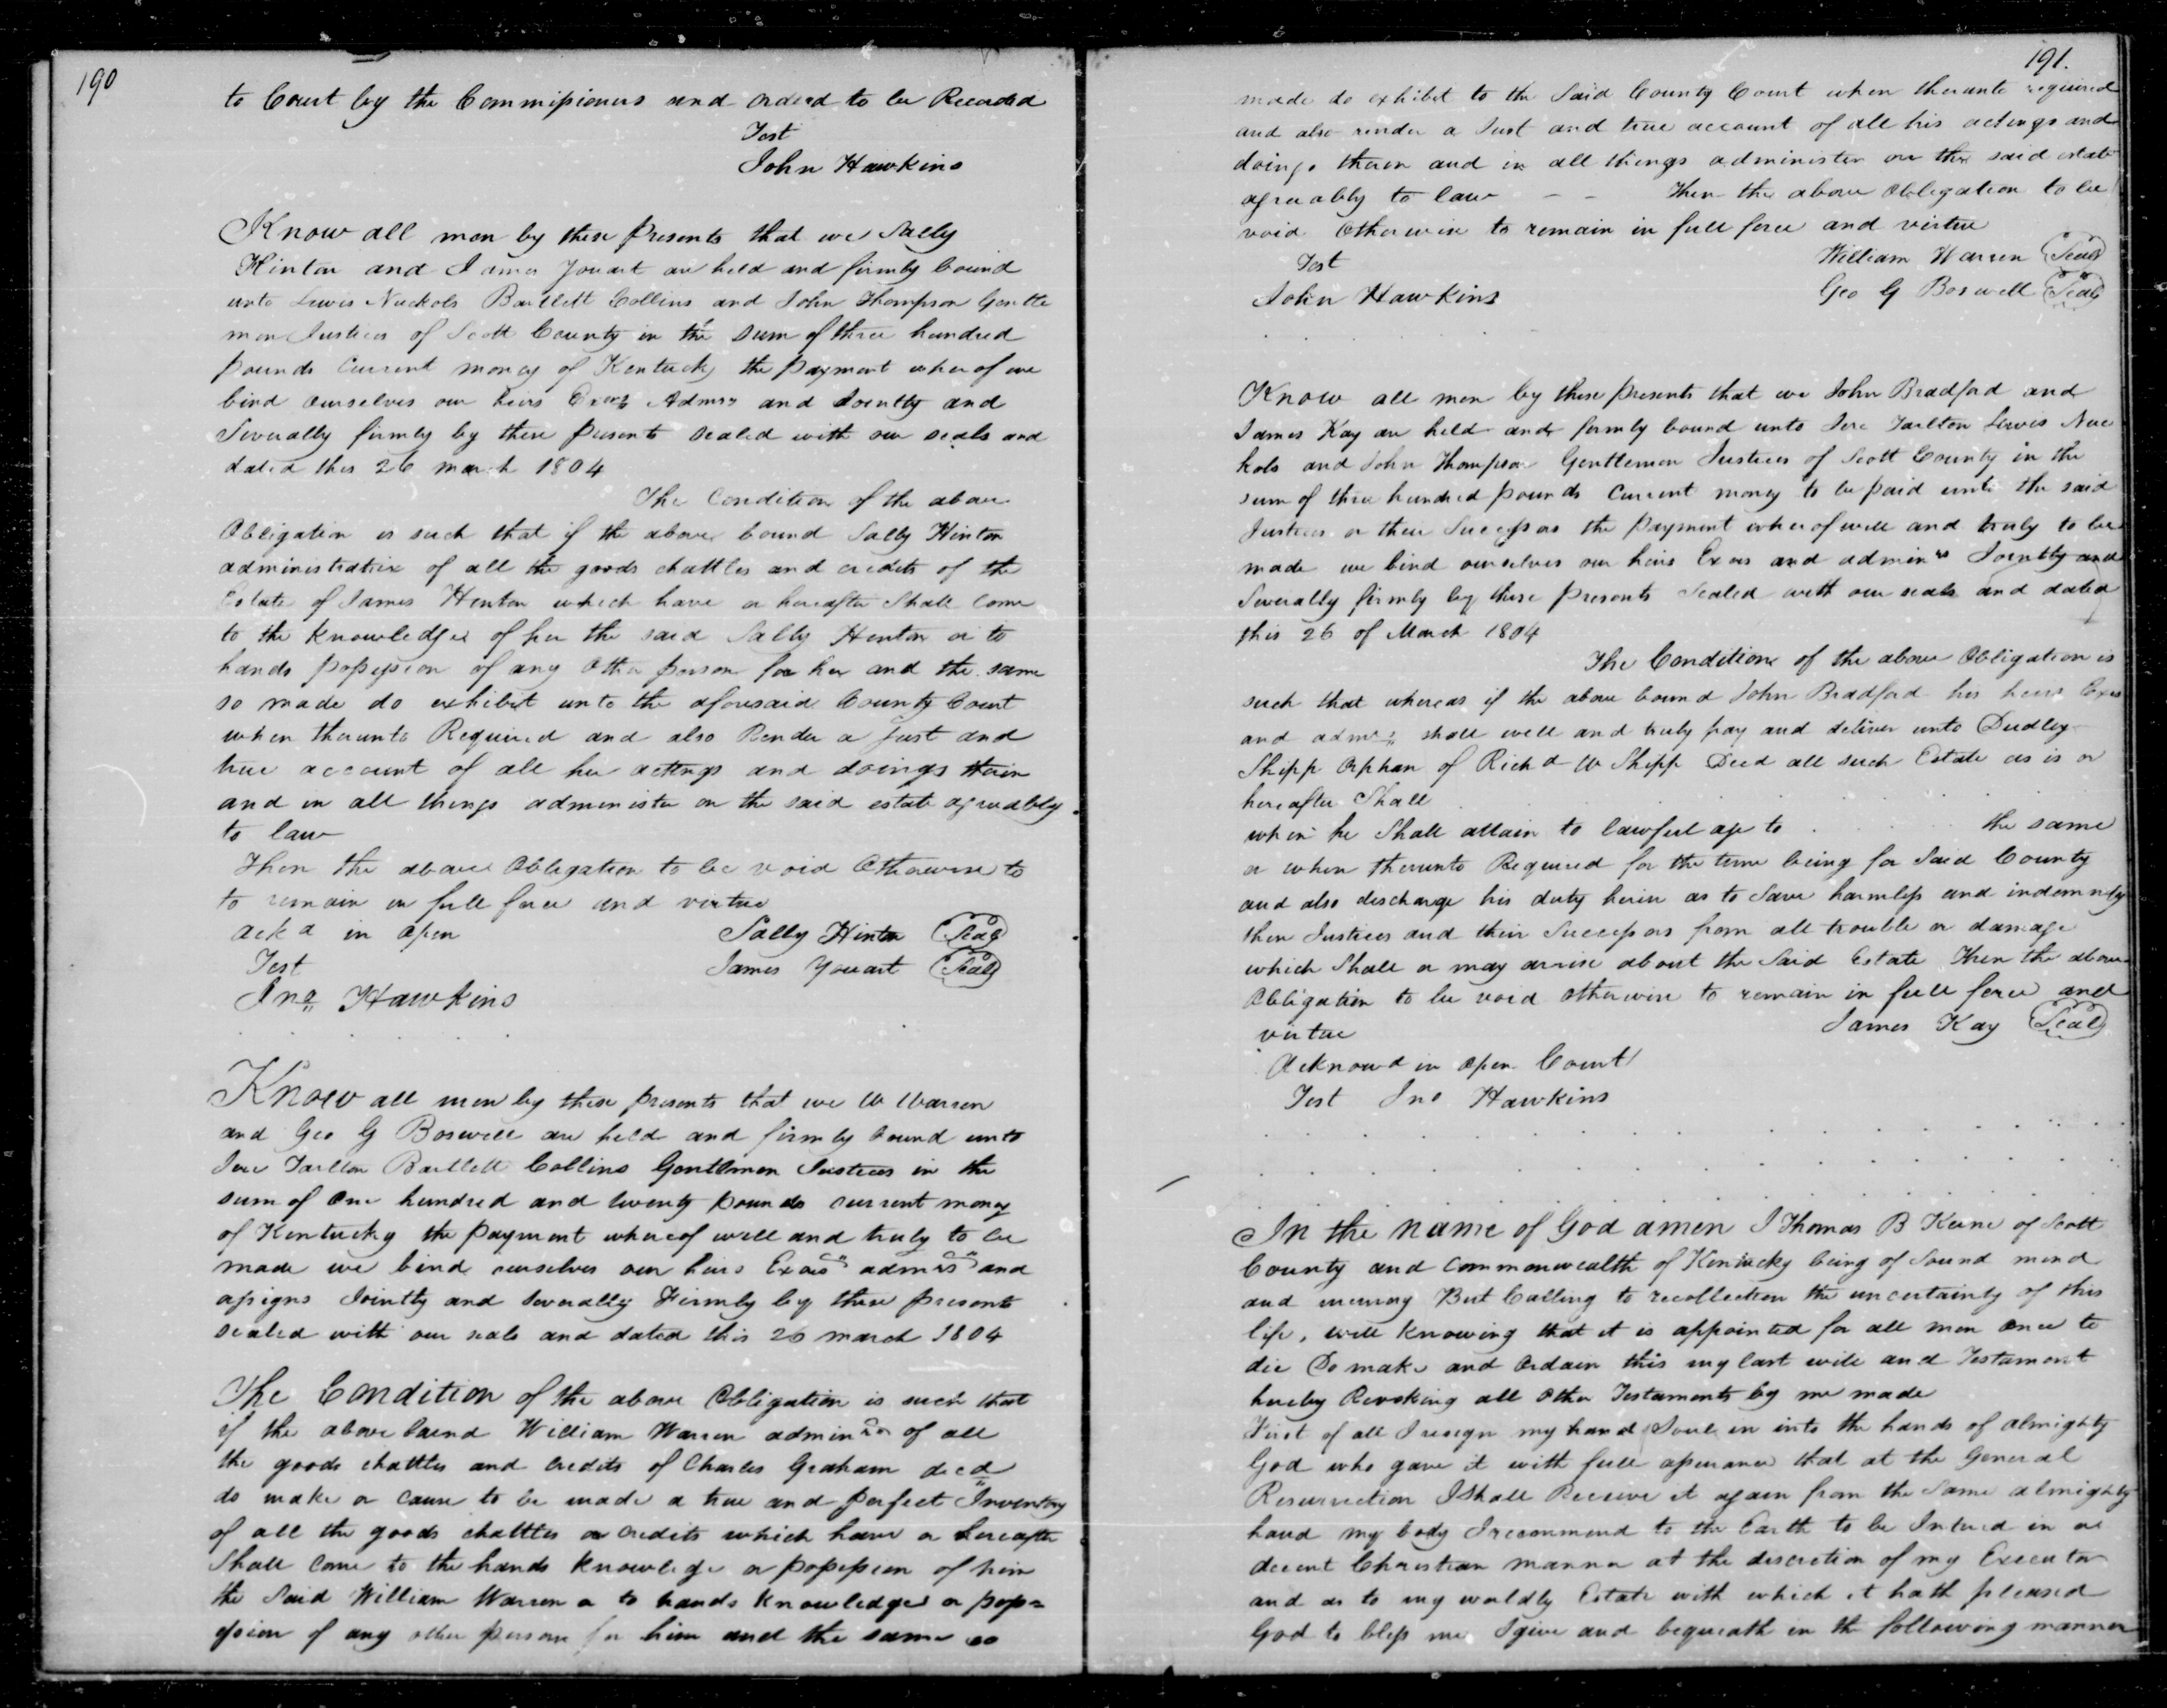 190
to Court by the Commissioners and ordered to be Recorded
Test
John Hawkins
Know all men by these presents that we Sally
Hinton and James Youart are held and firmly bound
unto Lewis Nuckols Bartlett Collins and John Thompson Gentle
men Justices of Scott County in the sum of three hundred
pounds Current money of Kentucky the payment wherof we
bind ourselves our heirs Exors Admrs and Jointly and
Severally firmly by these presents sealed with our seals and
dated this 26 march 1804
The Condition of the above
Obligation is such that if the above bound Sally Hinton
administratrix of all the goods chattles and credits of the
Estate of James Hinton which have or hereafter Shall Come
to the knowledge of her the said Sally Hinton or to
hands possession of any Other person for her and the same
so made do exhibit unto the aforesaid County Court
when therunto Required and also Render a just and
true account of all her actings and doings thein
and in all things administer on the said estate agreeably
to law
Then the above Obligation to be void Otherwise to
to remain in full force and virtue
Ackd in open
Sally Hinton Seal
Test
James Youart Seal
Jno Hawkins
Know all men by these presents that we W Warren
and Geo G Boswell are held and firmly bound unto
Jere Tarlton Bartlett Collins Gentlemen Justices in the
sum of One hundred and twenty pounds current money
of Kentucky the payment whereof well and truly to be
made we bind ourselves our heirs Exors admrs and
assigns Jointly and Severally Firmly by these presents
sealed with our seals and dated this 26 march 1804
The Condition of the above Obligation is such that
if the above bound William Warren admin of all
the goods chattles and credits of Charles Graham decd
do make or cause to be made a true and perfect Inventory
of all the goods chattles or credits which have or hereafter
Shall come to the hands knowledge or possession of him
the Said William Warren or to hands knowledge or poss=
ession of any other person for him and the same so
191.
made do exhibit to the Said County Court when therunto required
and also render a Just and true account of all his actings and
doings therin and in all things administer on the said estate
agreeably to law - - Then the above Obligation to be
void Otherwise to remain in full force and virtue
Test
William Warren Seal
John Hawkins
Geo G Boswell Seal
Know all men by these presents that we John Bradford and
James Kay are held and firmly bound unto Jere Tarlton Lewis Nuc
kols and John Thompson Gentlemen Justices of Scott County in the
sum of three hundred pounds Current money to be paid unto the said
Justices or their Successors the payment wherof well and truly to be
made we bind ourselves our heirs Exors and adminrs Jointly and
Severally firmly by these presents Sealed with our seals and dated
this 26 of March 1804
The Condition of the above Obligation is
such that whereas if the above bound John Bradford his heirs Exrs
and admrs shall well and truly pay and deliver unto Dudley
Shipp Orphan of Richd W Shipp Decd all such Estate as is or
hereafter Shall
when he Shall attain to lawful age to the same
or when therunto Required for the time being for Said County
and also discharge his duty herin as to Save harmless and indemnify
them Justices and their Successors from all trouble or damage
which Shall or may arise about the Said Estate Then the above
Obligation to be void otherwise to remain in full force and
virtue
James Kay Seal
Acknowd in open Court
Test Jno Hawkins
In the name of God amen I Thomas B Keene of Scott
County and Commonwealth of Kentucky being of Sound mind
and memory But Calling to recollection the uncertainty of this
life, well knowing that it is appointed for all men once to
die Do make and Ordain this my last will and Testament
hereby Revoking all Other Testaments by me made
First of all I resign my hand Soul in into the hands of almighty
God who gave it with full assurance that at the General
Resurrection I Shall Receive it again from the Same almighty
hand my body I recommend to the Earth to be Intered in a
decent Christian manner at the discretion of my Executor
and as to my worldly Estate with which it hath pleased
God to bless me I give and bequeath in the following manner